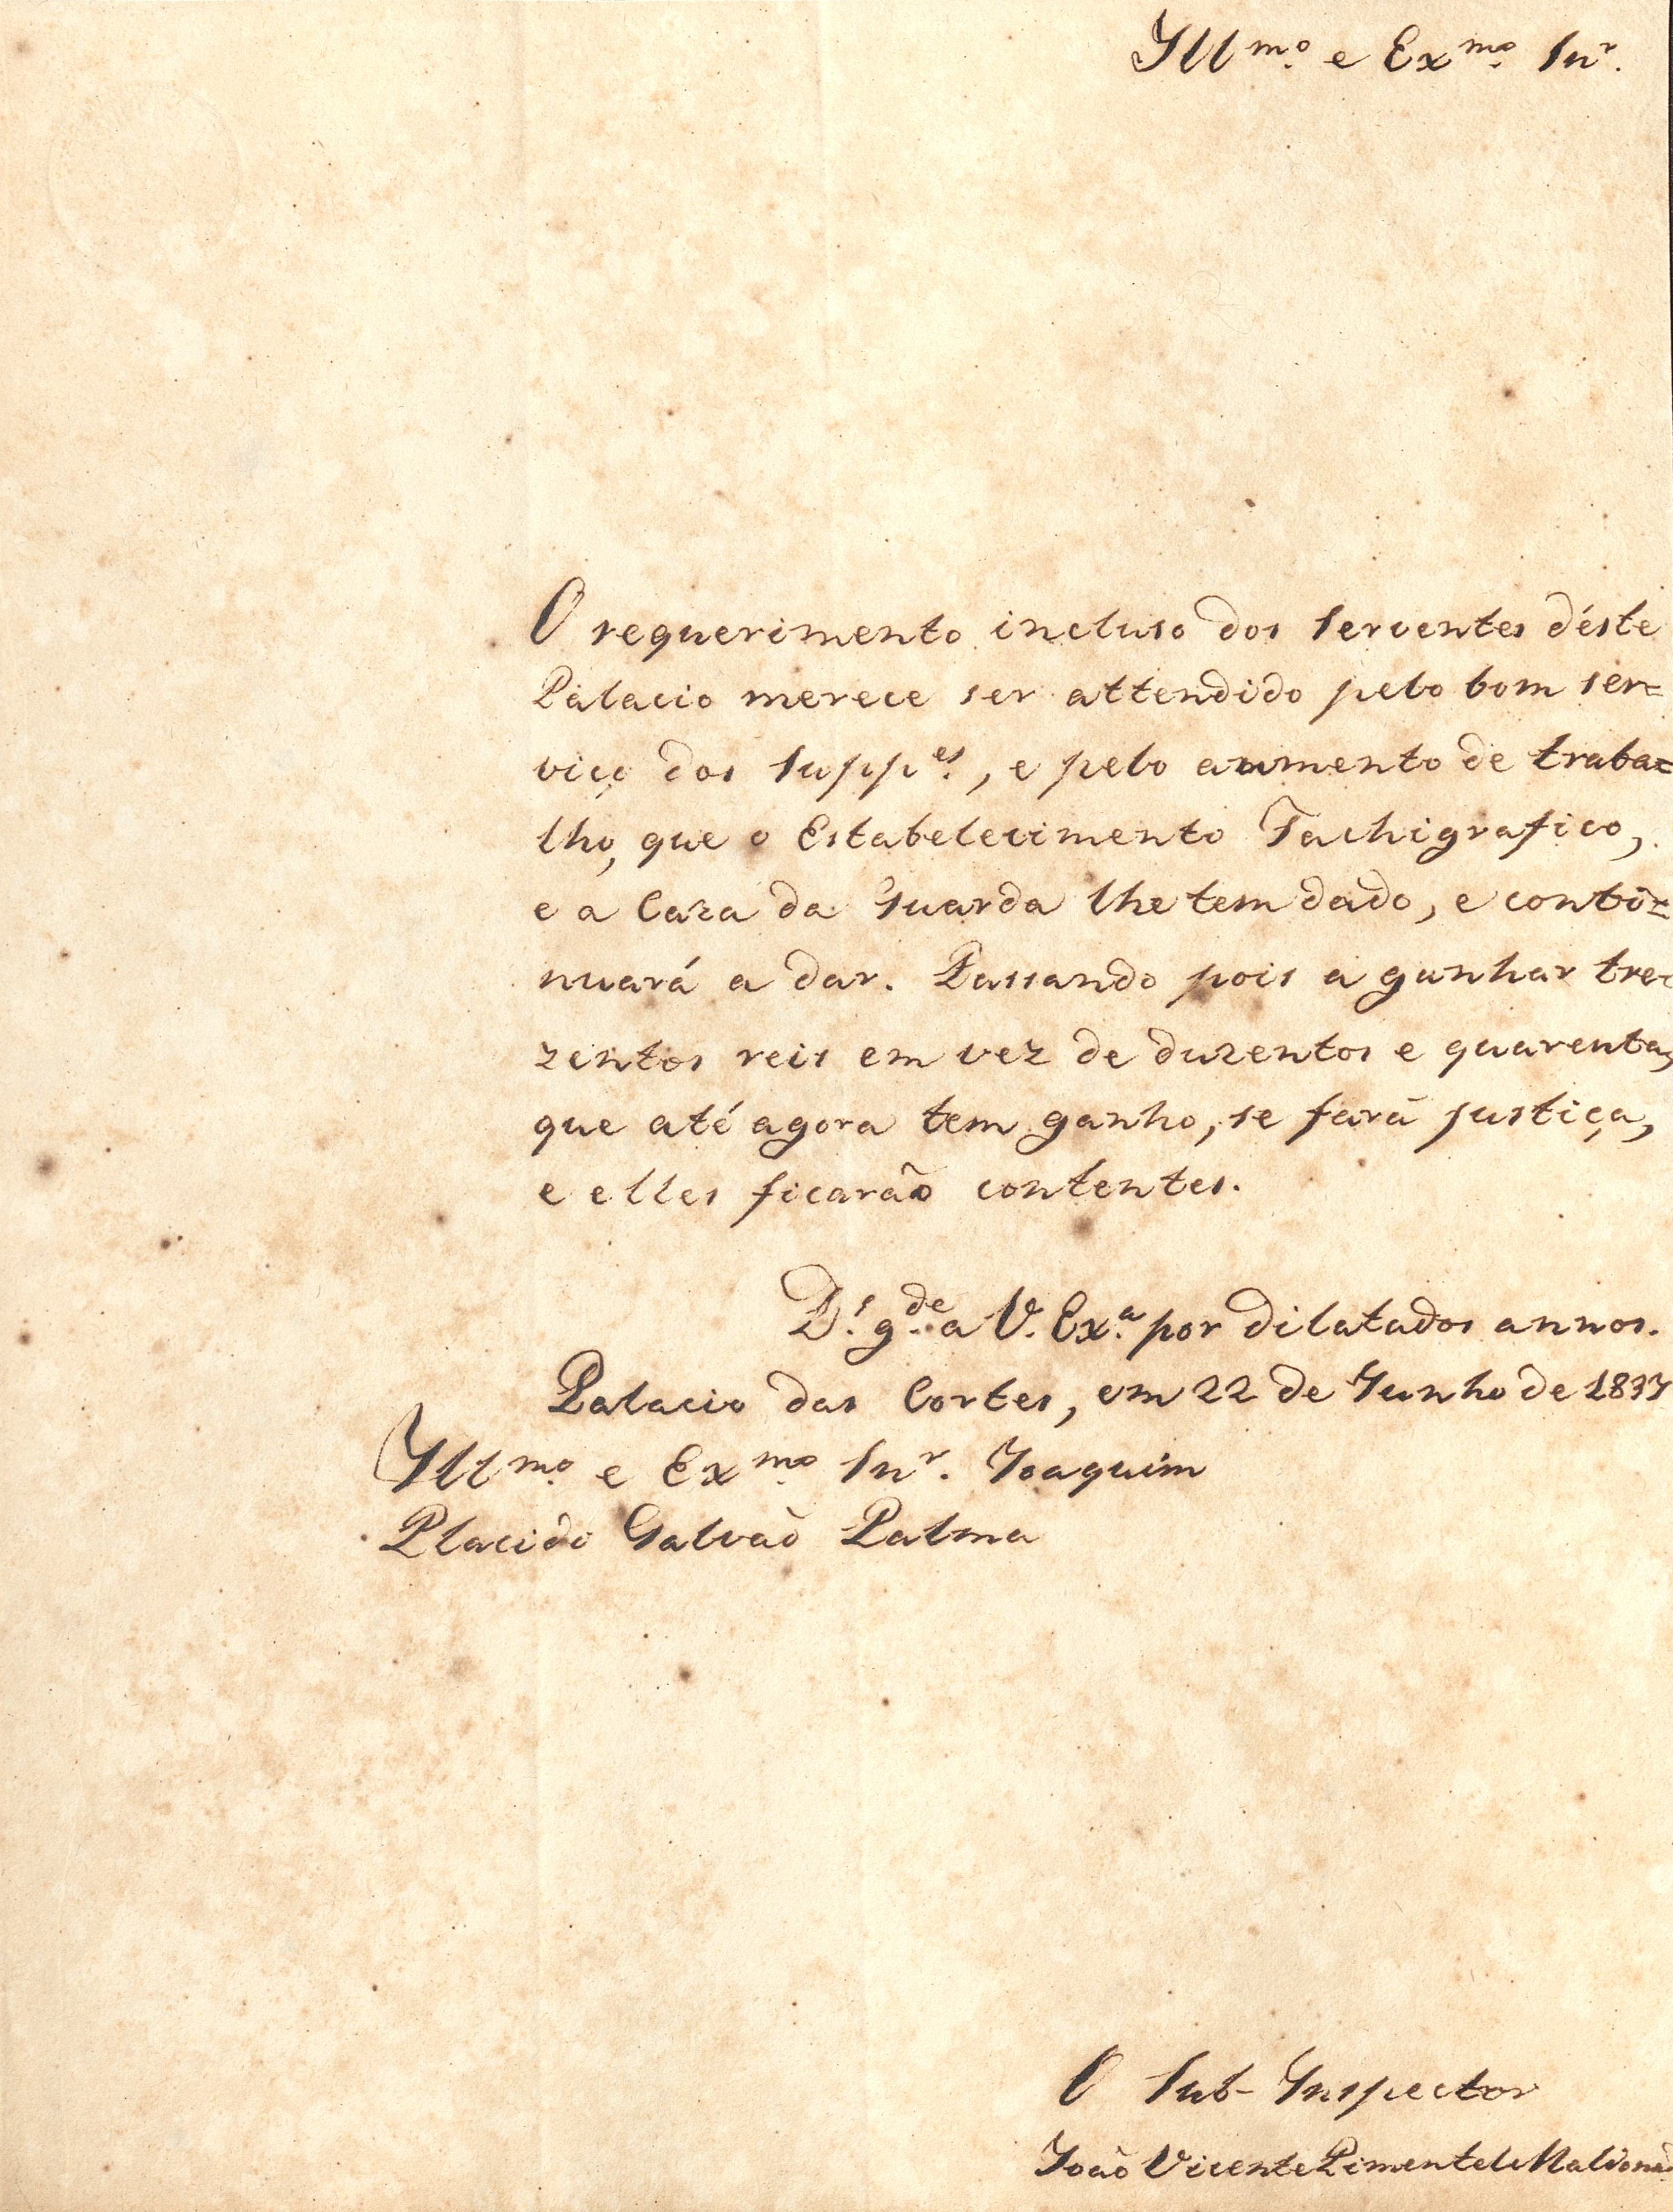 Illmo. e Exmo. Snr.
O requerimento incluso dos serventes déste
Palacio merece ser attendido pelo bom ser=
viço dos Suppes., e pelo aumento de traba=
lho, que o Estabelecimento Tachigrafico,
e a Caza da Guarda lhe tem dado, e conti=
nuará a dar. Passando pois a ganhar tre=
zentos reis em vez de duzentos e quarenta,
que até agora tem ganho, se fará justiça,
e elles ficarão contentes.
Ds. gde. a V. Exa. por dilatados annos.
Palacio das Cortes, em 22 de Junho de 1837
Illmo. e Exmo. Snr. Joaquim
Placido Galvão Palma
O Sub-Inspector
João Vicente Pimentel Maldonado